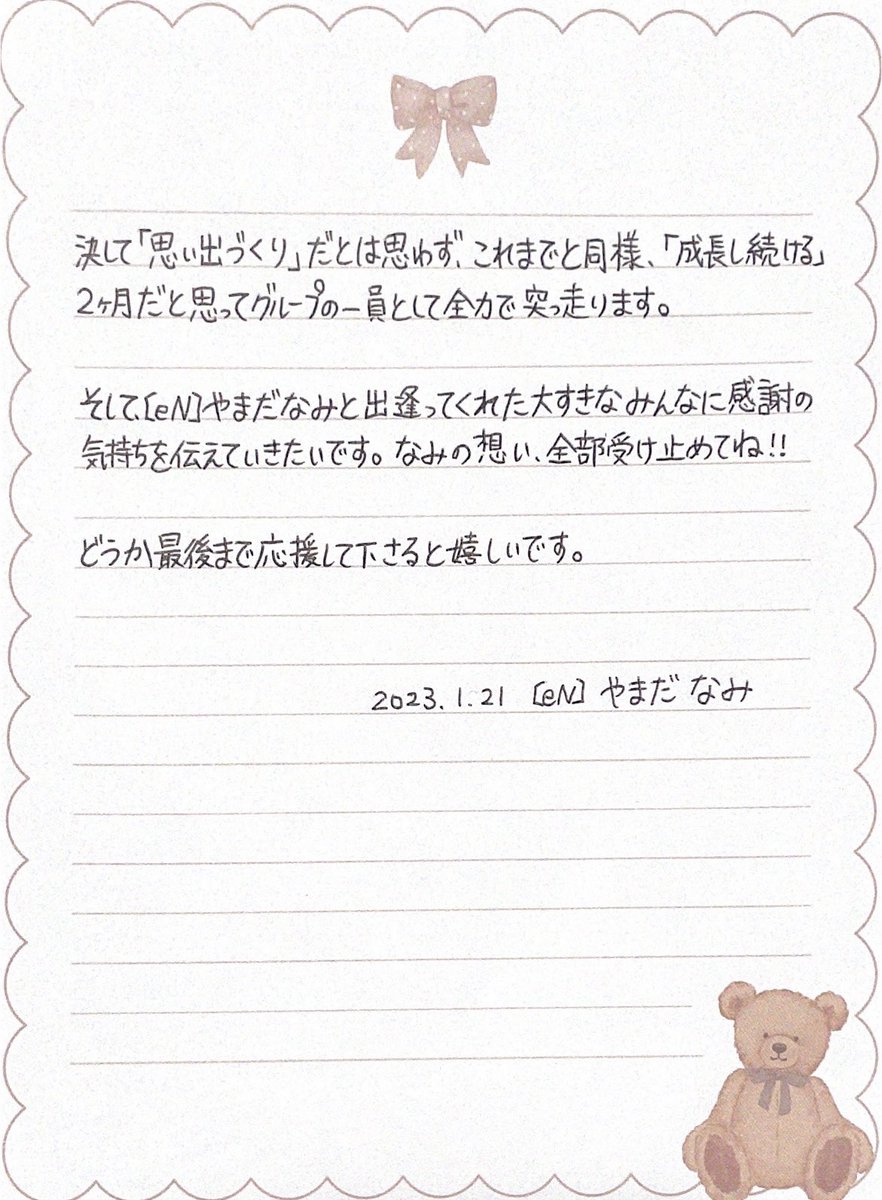 決して「思い出づくり」だとは思わず、これまでと同様、「成長し続ける」
2ヶ月だと思ってグループの一員として全力で突っ走ります。
そして、[eN]やまだなみと出逢ってくれた大すきなみんなに感謝の
気持ちを伝えていきたいです。なみの想い、全部受け止めてね!!
どうか最後まで応援して下さると嬉しいです。
2023.1.21 [eN] やまだ なみ